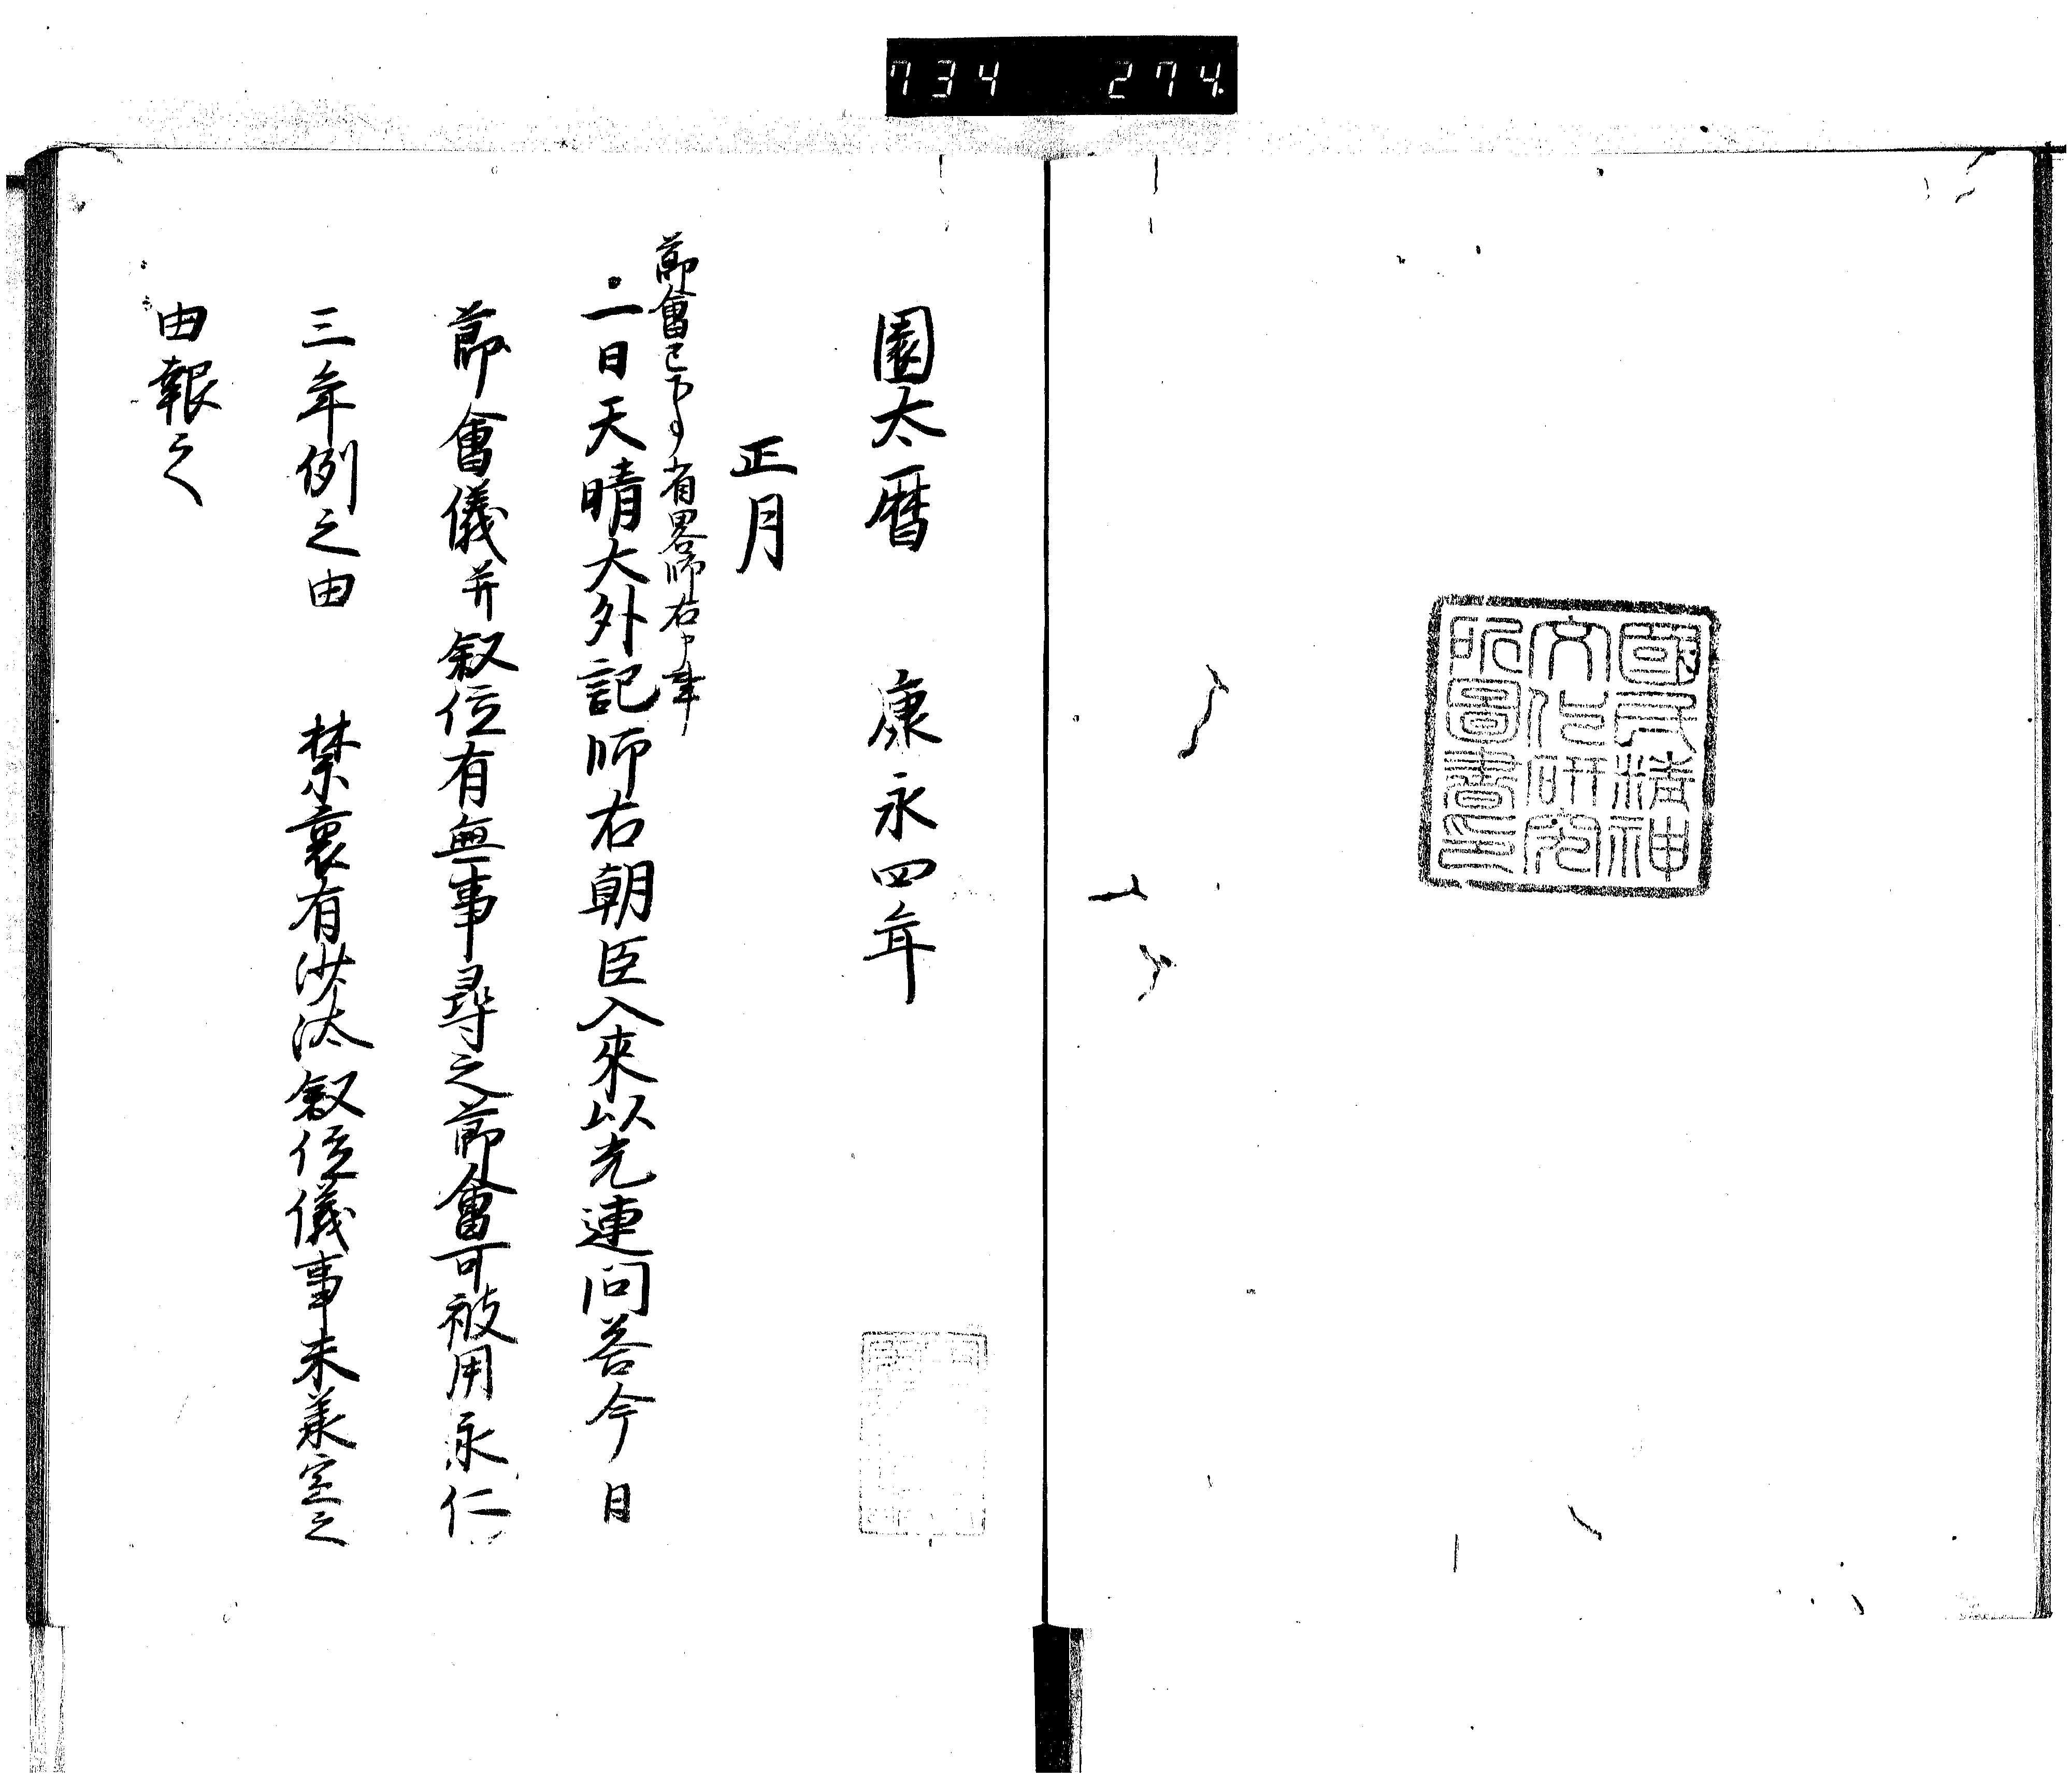 734 274
國民精神
文化研究
所圖書印
園太暦 康永四年
正月
節會已下事省略師右申事
一日天晴大外記師右朝臣入來以光連問答今日
節會儀并叙位有無事尋之節會可被用永仁
三年例之由 禁裏有沙汰叙位儀事未業定之
由報之